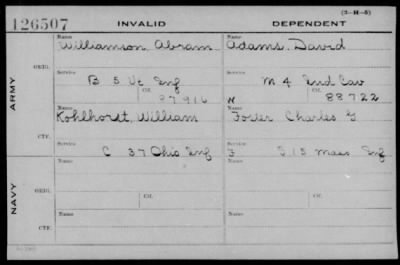 (3-H-5)
126507 INVALID DEPENDENT
Name Name
Williamson, Abram Adams, David
ORIG.
Service Service
B 5 Vt Inf M 4 Ind Cav
Ctf. Ctf.
87916 W 88722
ARMY
Name Name
Kohlhorst, William Foster Charles G
CTF.
Service Service
C 37 Ohio Inf F 15 Mass Inf
Name Name
ORIG.
Service Ctf. Service Ctf.
NAVY
Name Name
CTF.
Service Service